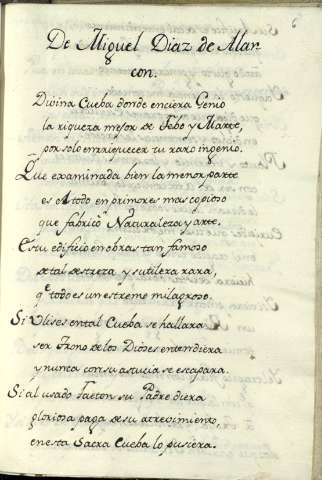 6
De Miguel Diaz de Alar
con.
Divina Cueba donde encierra Genio
la riqueza mejor de Febo y Marte,
por solo enrriquecer tu raro ingenio.
Que examinada bien la menor parte
es el todo en primores mas copioso
que fabricó Naturaleza y arte.
Es tu edificio en obras tan famoso
de tal destreza y sutileza rara,
qe todo es un estremo milagroso.
Si Ulises en tal Cueba se hallara
ser Trono de los Dioses entendiera
y nunca con su astucia se escapara.
Si al usado Faeton su Padre diera
gloriosa paga de su atrevimiento,
en esta Sacra Cueba lo pusiera.